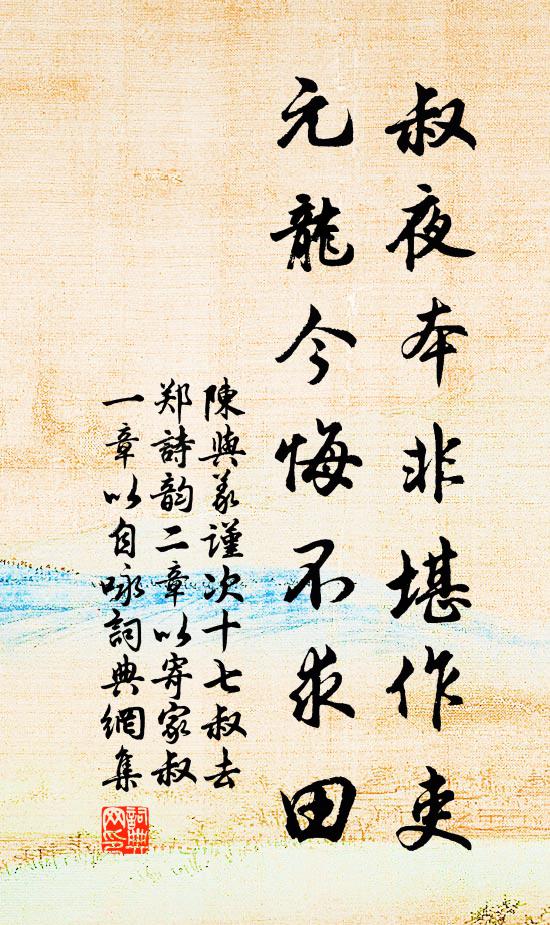 叔夜本非堪作吏
元龍今悔不求田
陳與義謹次十七叔去
郑詩韵二章以寄家叔
一章以自咏詞典網集
詞典网印